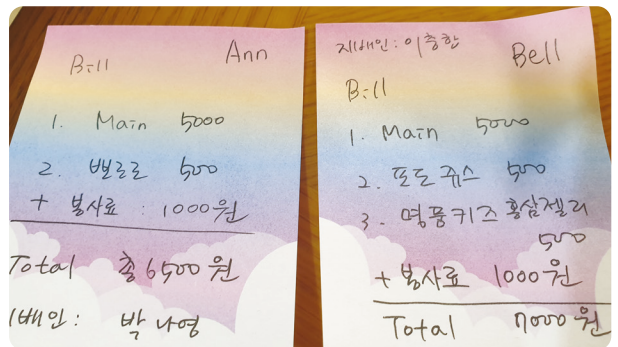 Ann
Bill
1. Main 5000
2. 뽀로로 500
+ 봉사료 : 1000원
Total 총 6500원
배인 : 박나영
지배인 : 이충한
Bell
Bill
1. Main 5000
2. 포도쥬스 500
3. 명품키즈 홍삼젤리
500
+ 봉사료 1000원
Total 7000원